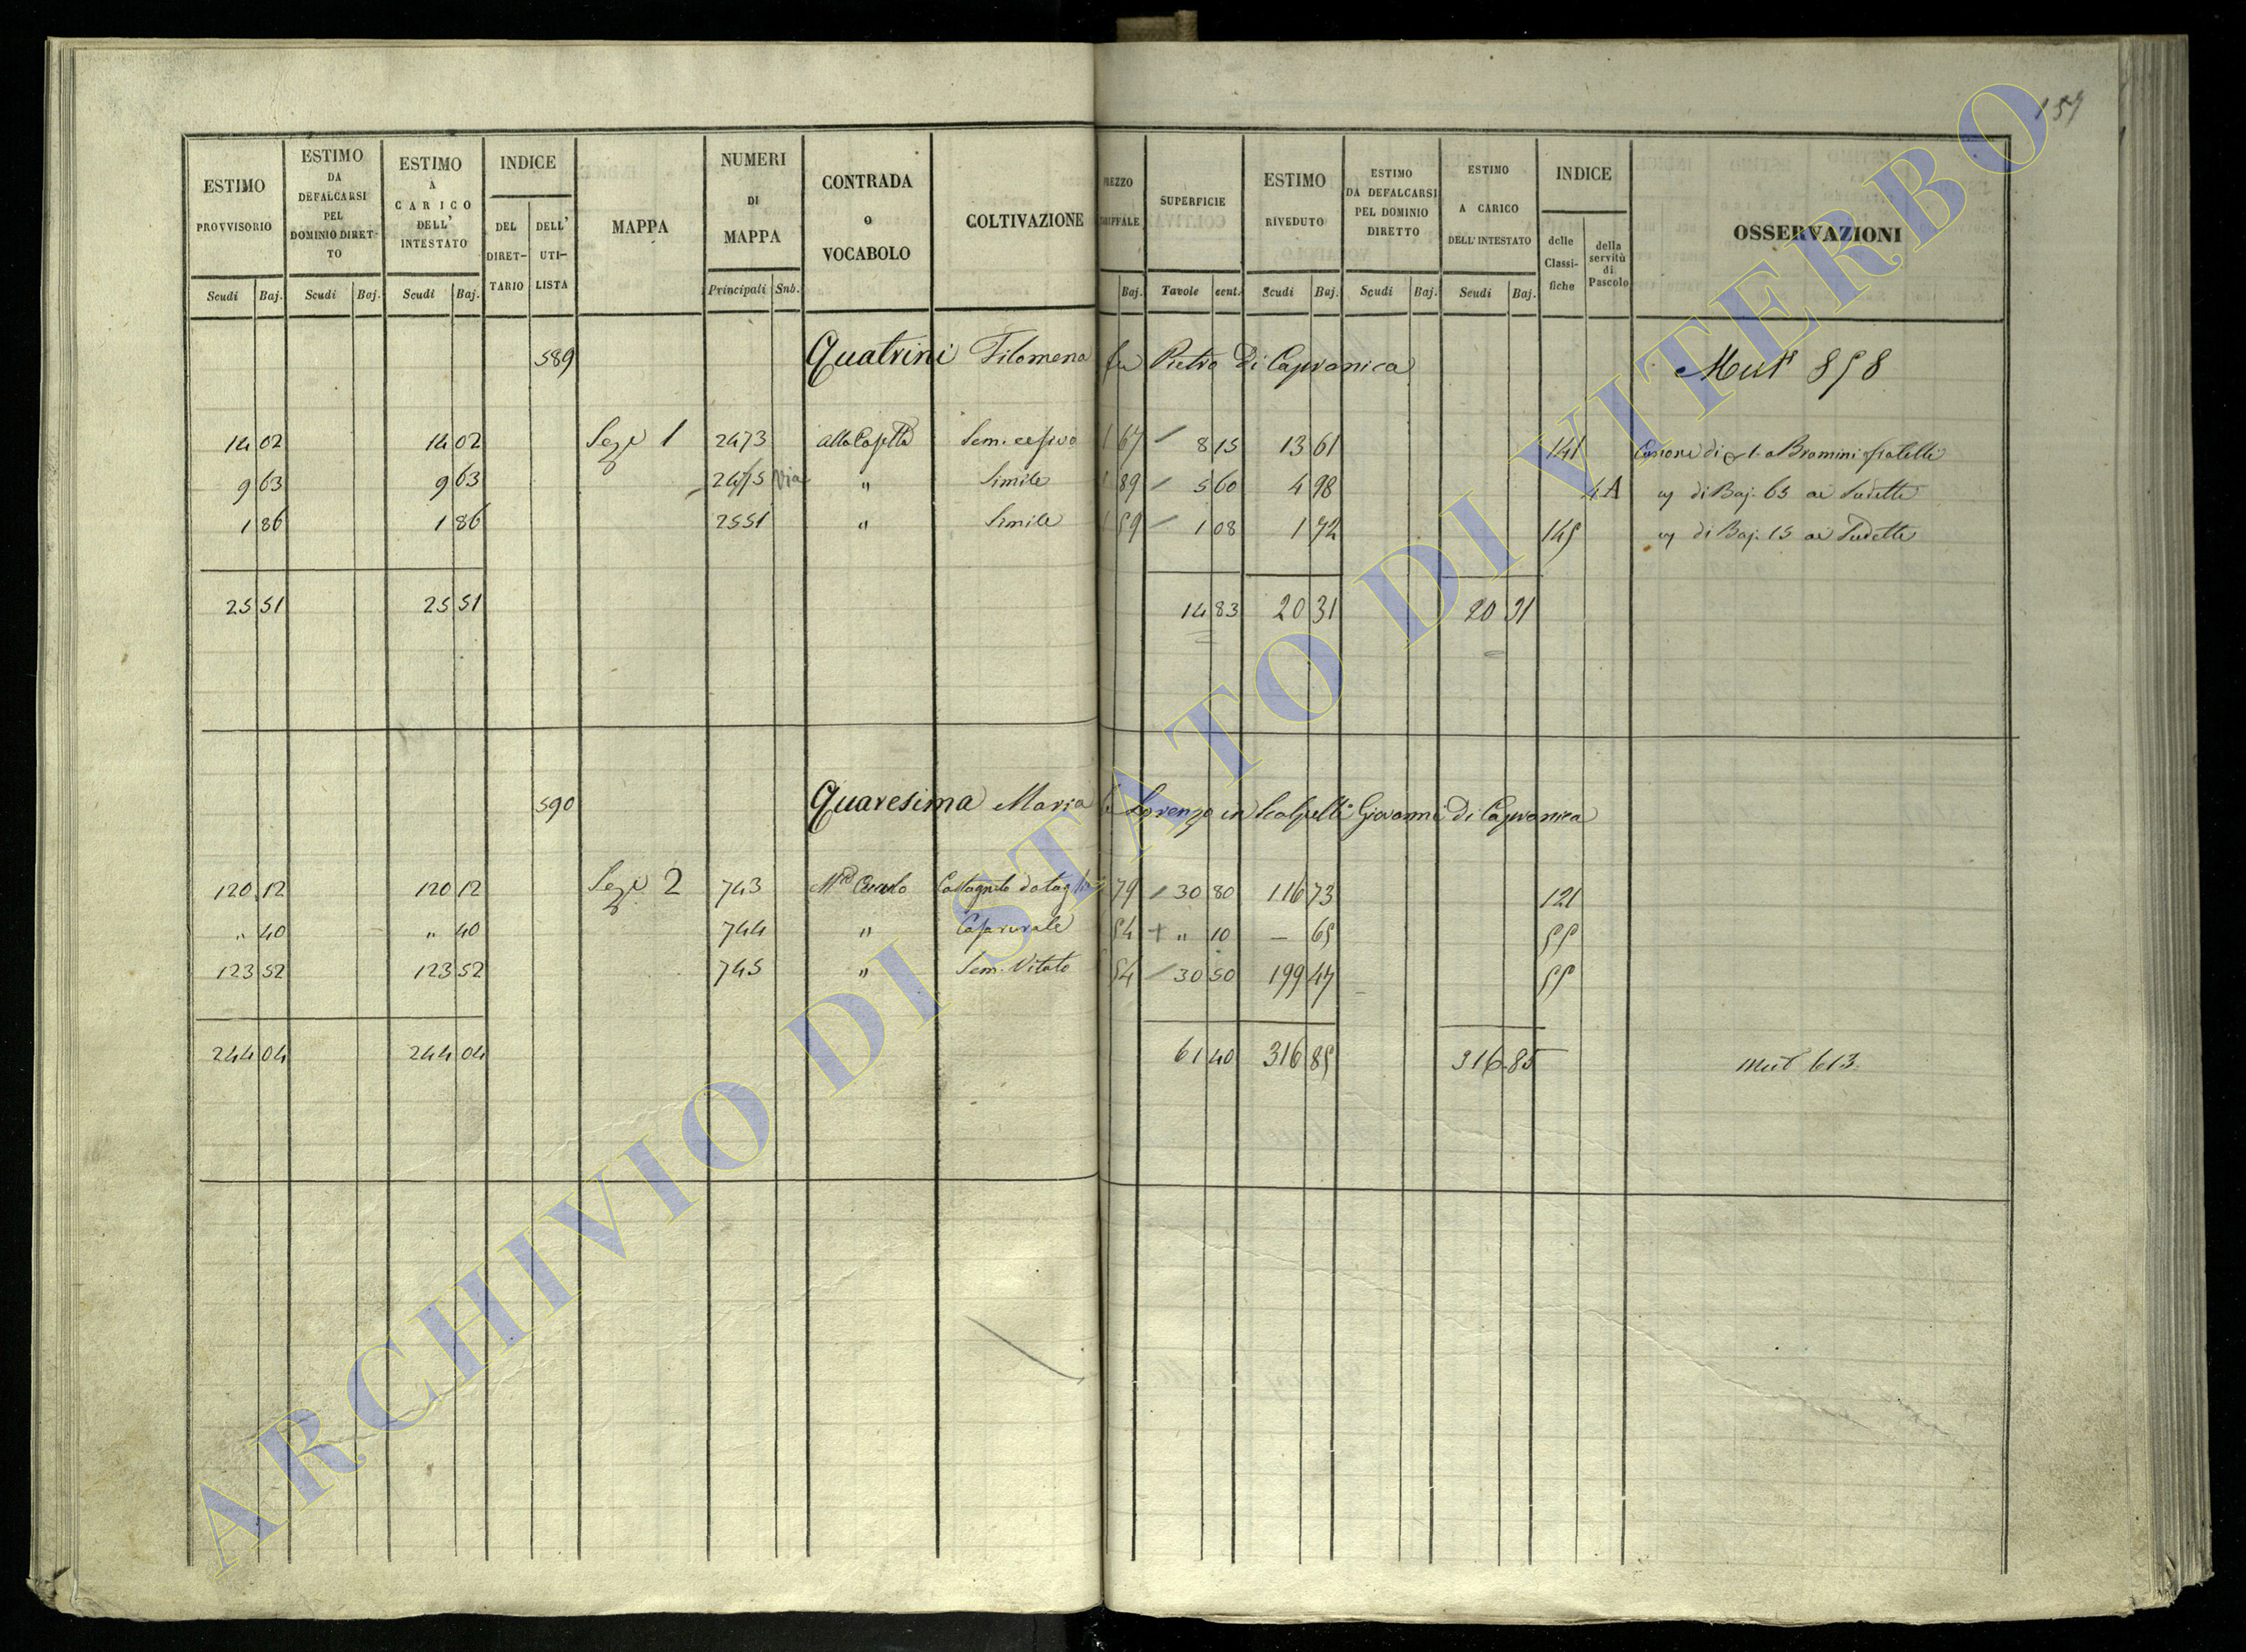 159
ESTIMO PROVVISORIO
ESTIMO DA DEFALCARSI PEL DOMINIO DIRETTO
ESTIMO A CARICO DELL' INTESTATO
INDICE
DEL DIRETTARIO
DELL' UTILISTA
MAPPA
NUMERI DI MAPPA
CONTRADA o VOCABOLO
COLTIVAZIONE
SUPERFICIE
ESTIMO RIVEDUTO
ESTIMO DA DEFALCARSI PEL DOMINIO DIRETTO
ESTIMO A CARICO DELL' INTESTATO
INDICE
delle Classifiche
della servitù di Pascolo
OSSERVAZIONI
Scudi Baj. Scudi Baj. Scudi Baj. Principali Sub. Baj. Tavole cent. Scudi Baj. Scudi Baj. Scudi Baj.
589 Quatrini Filomena fu Pietro Di Capranica Mut 858
14 02 14 02 Sez. 1 2473 Sem. 67 8 15 13 61 141 fratelli
9 63 9 63 2475 via " Simile 89 5 60 4 98 4A di Baj. 65 ai Sudetti
1 86 1 86 2551 " Simile 59 1 08 1 72 145 di Baj. 15 ai Sudetti
25 51 25 51 14 83 20 31 20 31
590 Quaresima Maria Lorenzo in Scalpelli Giovanni Di Capranica
120 12 120 12 Sez. 2 743 79 30 80 116 73 121
" 40 " 40 744 " 54 + " 10 — 65 55
123 52 123 52 745 " Sem. Vitato 54 30 50 199 47 55
244 04 244 04 61 40 316 85 316 85 mut 613
ARCHIVIO DI STATO DI VITERBO